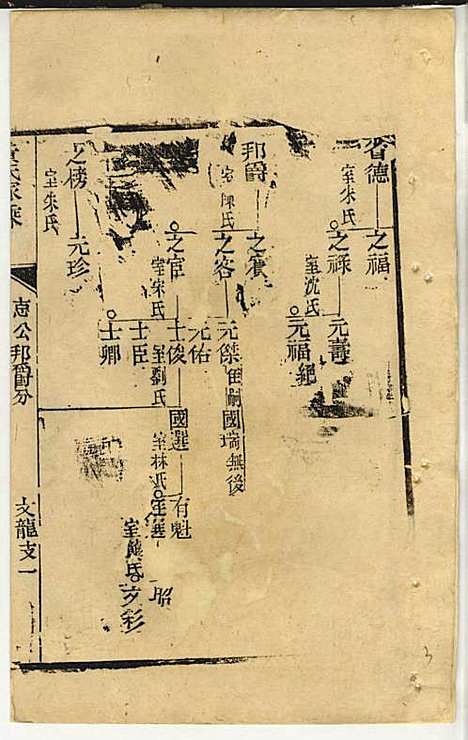 德
室朱氏
之福
之祿
室沈氏
元壽
元福絕
邦爵
室陳氏
之賓
之客
元傑
國瑞無後
元佑
之宦
室宋氏
士俊
室劉氏
國選
室林氏
有魁
室熊氏
士臣
士卿
之榜
室朱氏
元珍
氏家乘
志公邦爵分
文龍支一
3